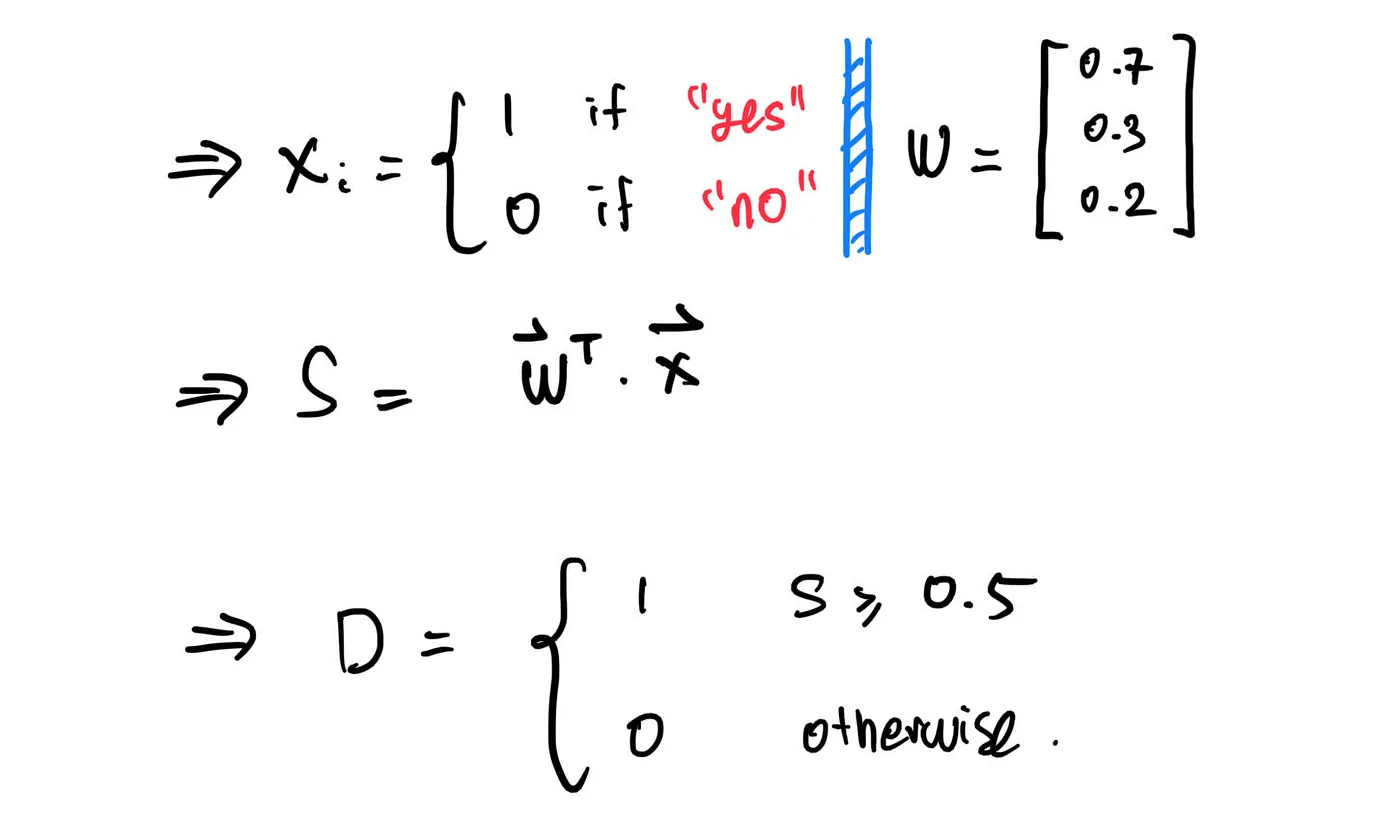 ⇒ xᵢ = { 1 if "yes" W = [ 0.7
0 if "no" 0.3
0.2 ]
⇒ S = w⃗ᵀ . x⃗
⇒ D = { 1 S ⩾ 0.5
0 otherwise.